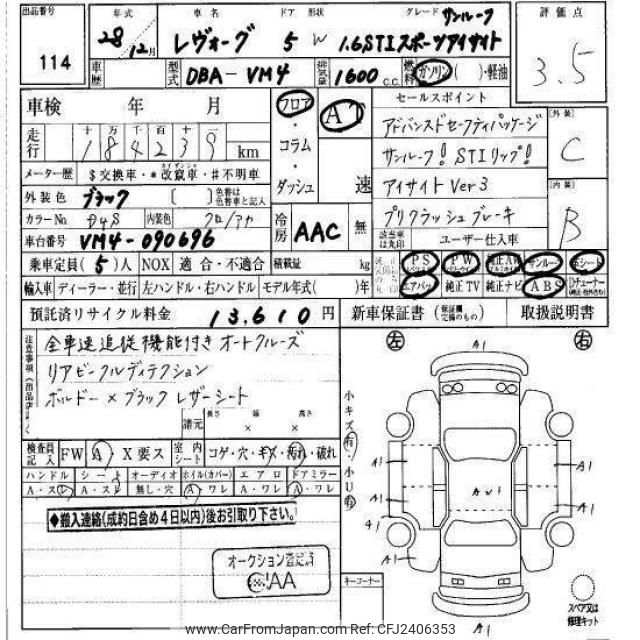 出品番号 年式 車名 ドア 形状 グレード サンルーフ 評価点
114 28 12月 レヴォーグ 5 W 1.6STIスポーツアイサイト 3.5
車歴 型式 DBA-VM4 排気量 1600 c.c. 燃料 ガソリン ( )・軽油
車検 年 月 フロア・コラム・ダッシュ AT 速 セールスポイント
走行 十万千百十 184239 km アドバンスドセーフティパッケージ [外装] C
サンルーフ! STIリップ!
メーター歴 $交換車・*改竄車・#不明車
カイザンシャ
アイサイト Ver3 [内装] B
外装色 ブラック [ ] 色替は色替車と記入
プリクラッシュブレーキ
カラーNo. D4S 内装色 冷房 AAC 無 該当車は丸印 ユーザー仕入車
車台番号 VM4-090696
乗車定員(5)人 NOX 適合・不適合 積載量 kg PS パワステ PW パワーウインドー 純正AW サンルーフ 革シート
輸入車 ディーラー・並行 左ハンドル・右ハンドル モデル年式( )年 エアバッグ 純正TV 純正ナビ ABS Dチューナー
預託済リサイクル料金 13,610円 新車保証書(保証欄完備のもの) 取扱説明書
注意事項 全車速追従機能付きオートクルーズ
リアビークルディテクション
ボルドー×ブラックレザーシート
諸元 長さ 幅 高さ
× ×
検査員記入 FW A・X要ス 室内シート コゲ・穴・キズ・汚れ・破れ
ハンドル シート オーディオ ホイル(カバー) エアロ ドアミラー
A・スレ A・スレ 無し・穴 A・ワレ A・ワレ A・ワレ
◆搬入連絡(成約日含め4日以内)後お引取り下さい。
オークション査定済
CAA
小キズ有・小U有
キーコーナー
左 右
A1
A1 A1
A1 AU1 A1
A1 A1
A1 A1
A1
スペア又は修理キット
www.CarFromJapan.com Ref: CFJ2406353